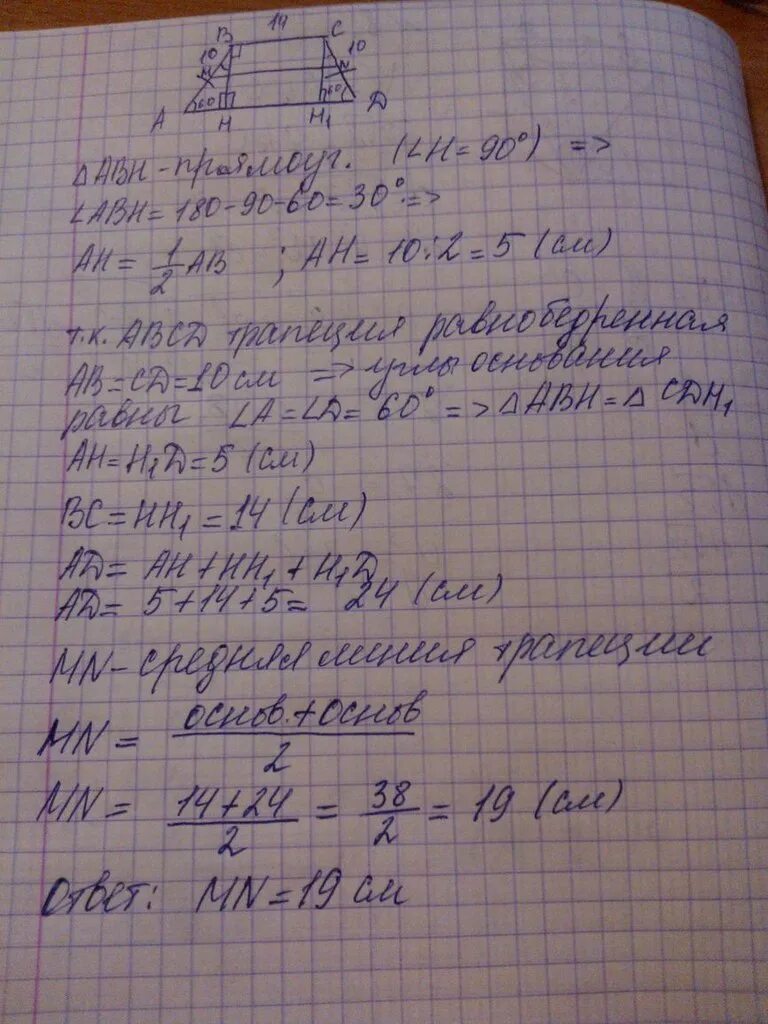 14
B C
10 10
M N
60° 60°
A H H₁ D
△ABH - прямоуг. (∠H = 90°) =>
∠ABH = 180-90-60 = 30° =>
AH = 1/2 AB ; AH = 10:2 = 5 (см)
т.к. ABCD трапеция равнобедренная
AB = CD = 10 см => углы основания
равны ∠A = ∠D = 60° => △ABH = △CDH₁
AH = H₁D = 5 (см)
BC = HH₁ = 14 (см)
AD = AH + HH₁ + H₁D
AD = 5 + 14 + 5 = 24 (см)
MN - средняя линия трапеции
MN = основ. + основ / 2
MN = 14 + 24 / 2 = 38 / 2 = 19 (см)
Ответ: MN = 19 см